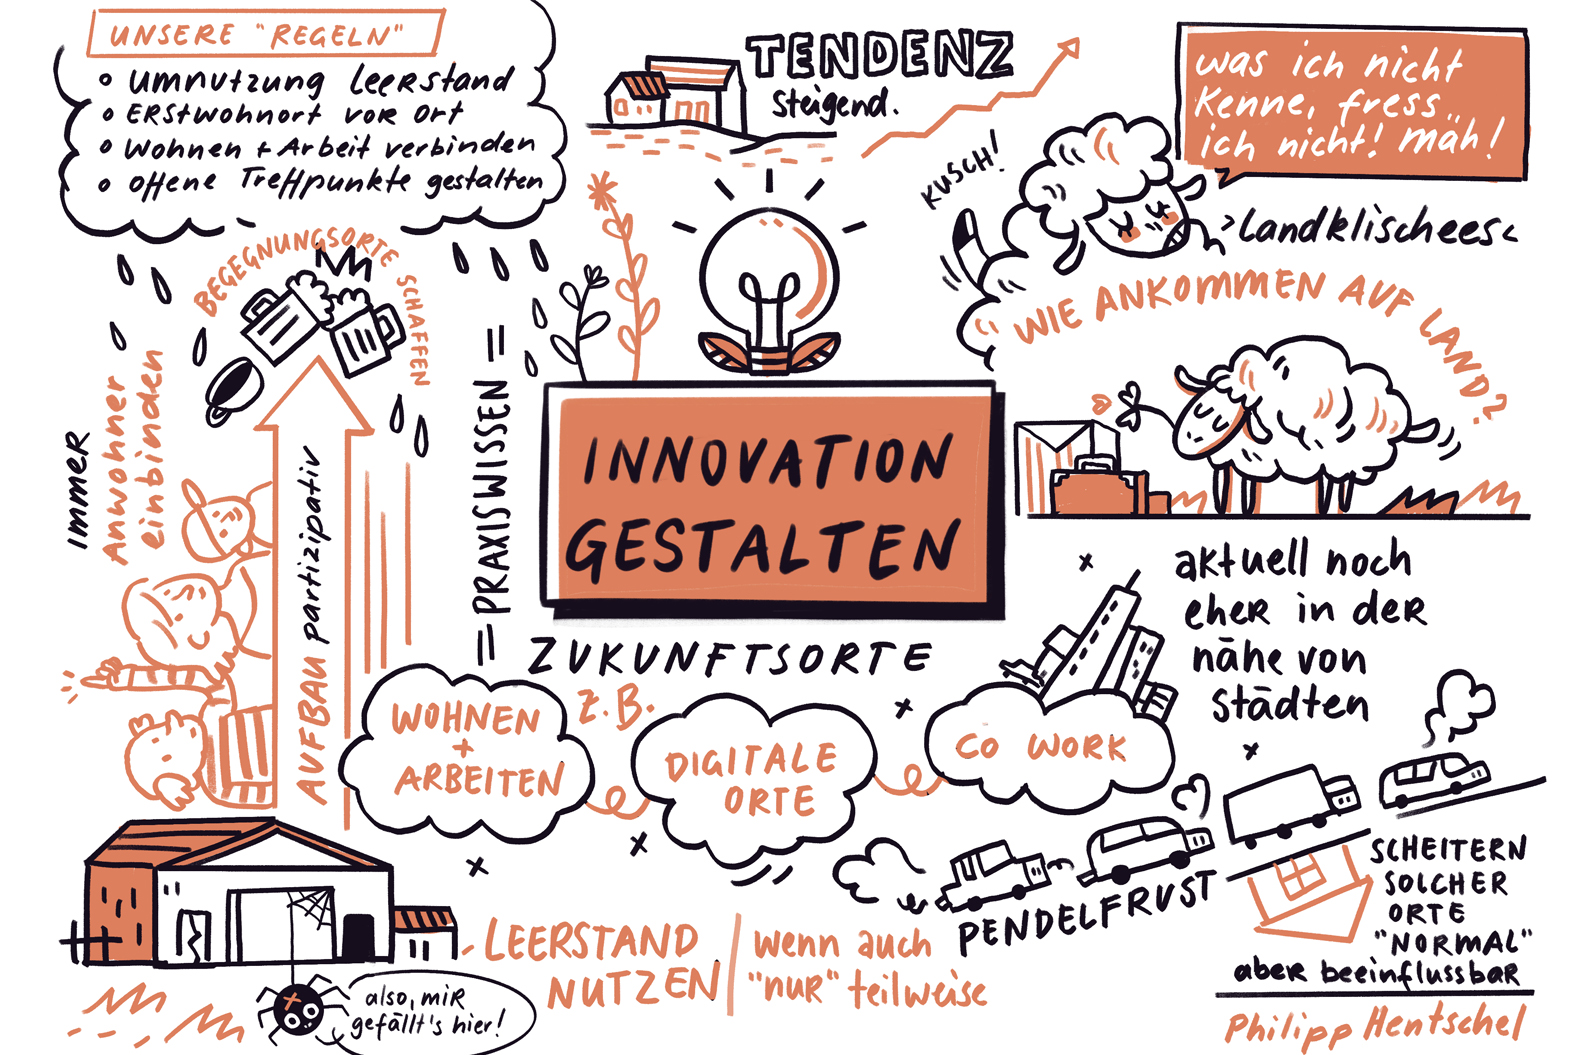 UNSERE "REGELN"
Umnutzung Leerstand
Erstwohnort vor Ort
Wohnen + Arbeit verbinden
offene Treffpunkte gestalten
BEGEGNUNGSORTE SCHAFFEN
IMMER
Anwohner
einbinden
AUFBAU partizipativ
= PRAXISWISSEN =
TENDENZ
steigend.
KUSCH!
was ich nicht
kenne, fress
ich nicht! mäh!
Landklischees
WIE ANKOMMEN AUF LAND?
INNOVATION
GESTALTEN
ZUKUNFTSORTE
z.B.
WOHNEN
+
ARBEITEN
DIGITALE
ORTE
CO WORK
aktuell noch
eher in der
nähe von
Städten
PENDELFRUST
SCHEITERN
SOLCHER
ORTE
"NORMAL"
aber beeinflussbar
LEERSTAND
NUTZEN
wenn auch
"nur" teilweise
also, mir
gefällt's hier!
Philipp Hentschel